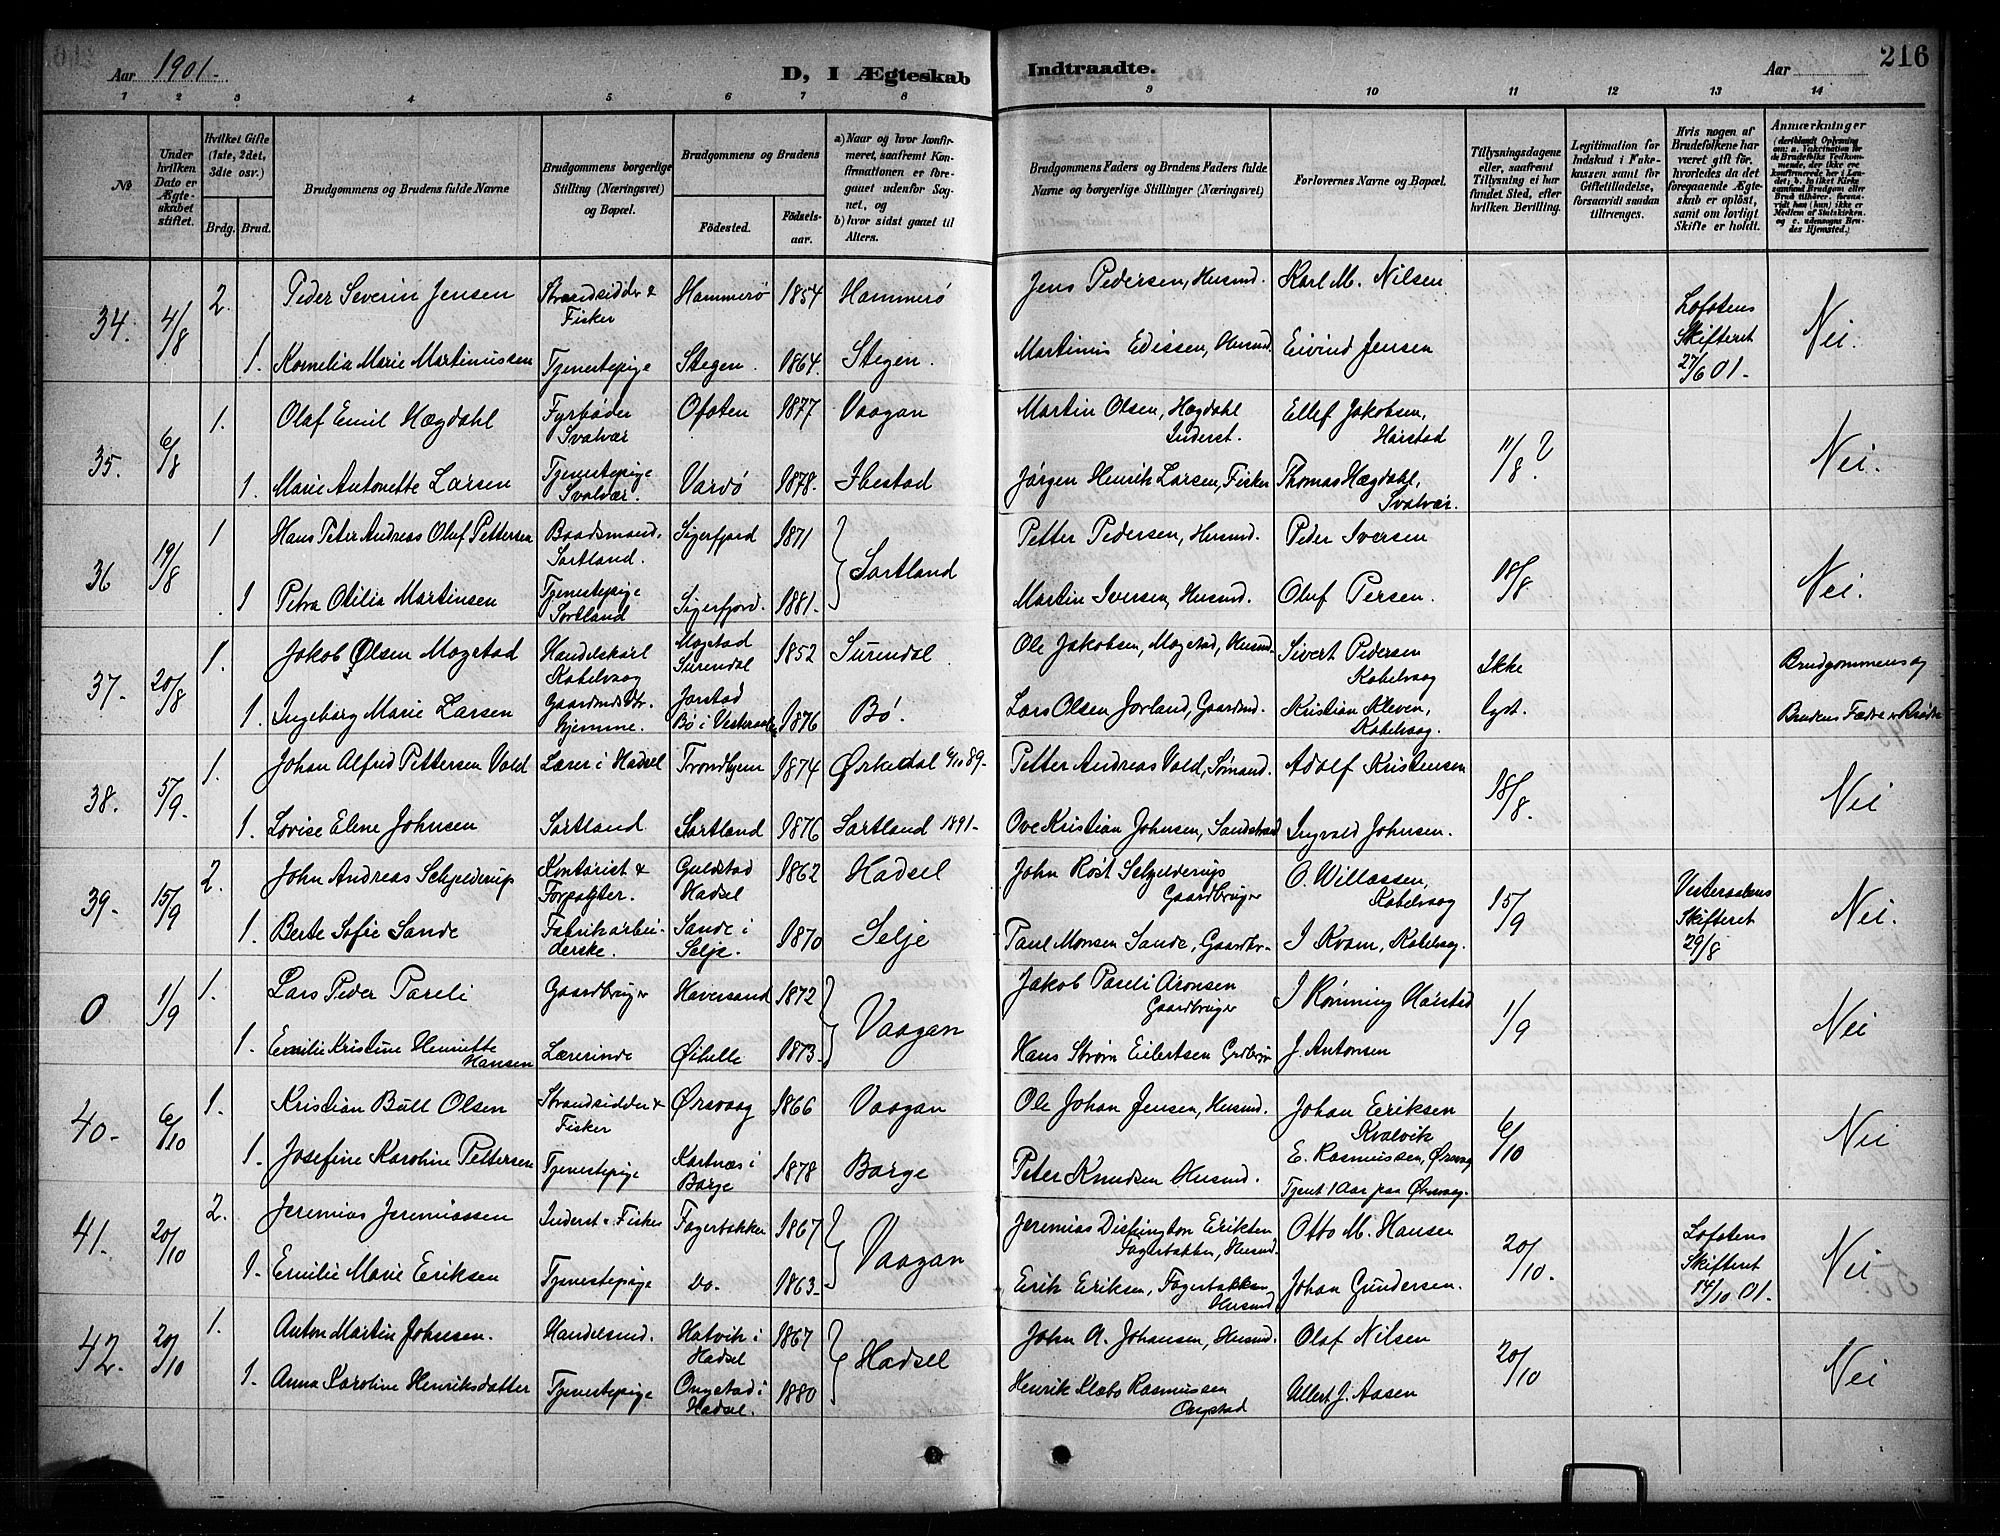 Aar 1901.
D, I Ægteskab Indtraadte.
Aar
216
1 2 3 4 5 6 7 8 9 10 11 12 13 14
№
Under hvilken Dato er Ægteskabet stiftet.
Hvilket Gifte (1ste, 2det, 3die osv.)
Brdg. Brud.
Brudgommens og Brudens fulde Navne
Brudgommens borgerlige Stilling (Næringsvei) og Bopæl.
Brudgommens og Brudens
Fødested.
Fødselsaar.
a) Naar og hvor konfirmeret, saafremt Konfirmationen er foregaaet udenfor Sognet, og
b) hvor sidst gaaet til Alters.
Brudgommens Faders og Brudens Faders fulde Navne og borgerlige Stillinger (Næringsvei)
Forlovernes Navne og Bopæl.
Tillysningsdagene eller, saafremt Tillysning ei har fundet Sted, efter hvilken Bevilling.
Legitimation for Indskud i Fakkassen samt for Giftetilladelse, forsaavidt saadan tiltrænges.
Hvis nogen af Brudefolkene har været gift før, hvorledes da det foregaaende Ægteskab er opløst, samt om lovligt Skifte er holdt.
Anmærkninger
34. 4/8 2. Peder Severin Jensen Strandsidder & Fisker Hammerø 1854 Hammerø Jens Pedersen, Husmd. Karl M. Nilsen Lofotens Skifteret 27/6 01. Nei.
1. Kornelia Marie Martinussen Tjenestepige Stegen. 1864. Stegen. Martinus Edissen, Husmd. Eivind Jensen
35. 6/8 1. Olaf Emil Hægdahl Fyrbøder Svolvær Ofoten 1877 Vaagan Martin Olsen, Hægdahl Inderst. Ellef Jakobsen, Harstad 11/8 ? Nei.
1. Marie Antonette Larsen Tjenestepige Svolvær. Vardø 1878. Ibestad Jørgen Henrik Larsen, Fisker Thomas Hægdahl, Svolvær.
36 19/8 1 Hans Peter Andreas Oluf Pettersen Baadsmand, Sortland. Sigerfjord 1871 Sortland Petter Pedersen, Husmd. Peder Iversen 18/8 Nei.
1 Petra Otilia Martinsen Tjenestepige Sortland Sigerfjord. 1881. Martin Iversen, Husmd. Oluf Persen.
37. 20/8 1. Jakob Olsen Mogstad Handelskarl Kabelvaag Mogstad Surendal 1852 Surendal Ole Jakobsen, Mogstad, Husmd. Sivert Pedersen Kabelvaag Ikke lyst. Brudgommens og Brudens Fædre er Brødre
1. Ingeborg Marie Larsen Gaardmds Dtr. Hjemme. Jorstad Bø i Vesteraalen 1876 Bø. Lars Olsen Jorland, Gaardmd. Kristian Kleven, Kabelvaag.
38. 5/9 1. Johan Alfred Pettersen Vold Lærer i Hadsel Trondhjem 1874 Ørkedal 6/10 89. Petter Andreas Vold, Sømand. Adolf Kristensen 18/8. Nei
1. Lovise Elene Johnsen Sortland Sortland 1876 Sortland 1891. Ove Kristian Johnsen, Sandstrand Ingvald Johnsen.
39. 15/9 2. John Andreas Schjelderup Kontorist & Forpagter. Guldstad Hadsel 1862 Hadsel John Røst Schjelderup Gaardbruger O. Willassen, Kabelvaag 15/9 Vesteraalens Skifteret 29/8 Nei.
1. Berte Sofie Sande Fabrikarbeiderske. Sande i Selje. 1870 Selje Paul Monsen Sande, Gaardbr. I Kvam, Kabelvaag.
0 1/9 1. Lars Peder Pareli Gaardbruger Haversand 1872 Vaagan Jakob Pareli Aronsen Gaardbruger I Rønning Harstad 1/9 Nei
1. Emilie Kristine Henriette Hansen Lærerinde Øihelle 1873. Hans Strøm Eilertsen Grdbrgr J. Antonsen
40. 6/10 1. Kristian Bull Olsen Strandsidder & Fisker Ørsvaag 1866 Vaagan Ole Johan Jensen, Husmd. Johan Eriksen Kvalvik 6/10 Nei
1. Josefine Karoline Pettersen Tjenestepige Kartnæs i Borge 1878 Borge Peter Knudsen Husmd. E. Rasmussen, Ørsvag Tjent 1 Aar paa Ørsvaag.
41. 20/10 2. Jeremias Jeremiassen Inderst & Fisker Fagerbakken 1867 Vaagan Jeremias Dispington Eriksen Fagerbakken, Husmd. Otto M. Hansen 20/10. Lofotens Skifteret 14/10 01. Nei
1. Emilie Marie Eriksen Tjenestepige Do. 1863. Erik Eriksen, Fagerbakken Husmd Johan Gundersen.
42. 20/10 1. Anton Martin Johnsen. Handelsmd. Hatvik i Hadsel 1867 Hadsel John A. Johansen, Husmd. Olaf Nilsen 20/10 Nei
1. Anna Karoline Henriksdatter Tjenestepige Ongstad i Hadsel. 1880 Henrik Klæbo Rasmussen Ongstad Ullert J. Aasen